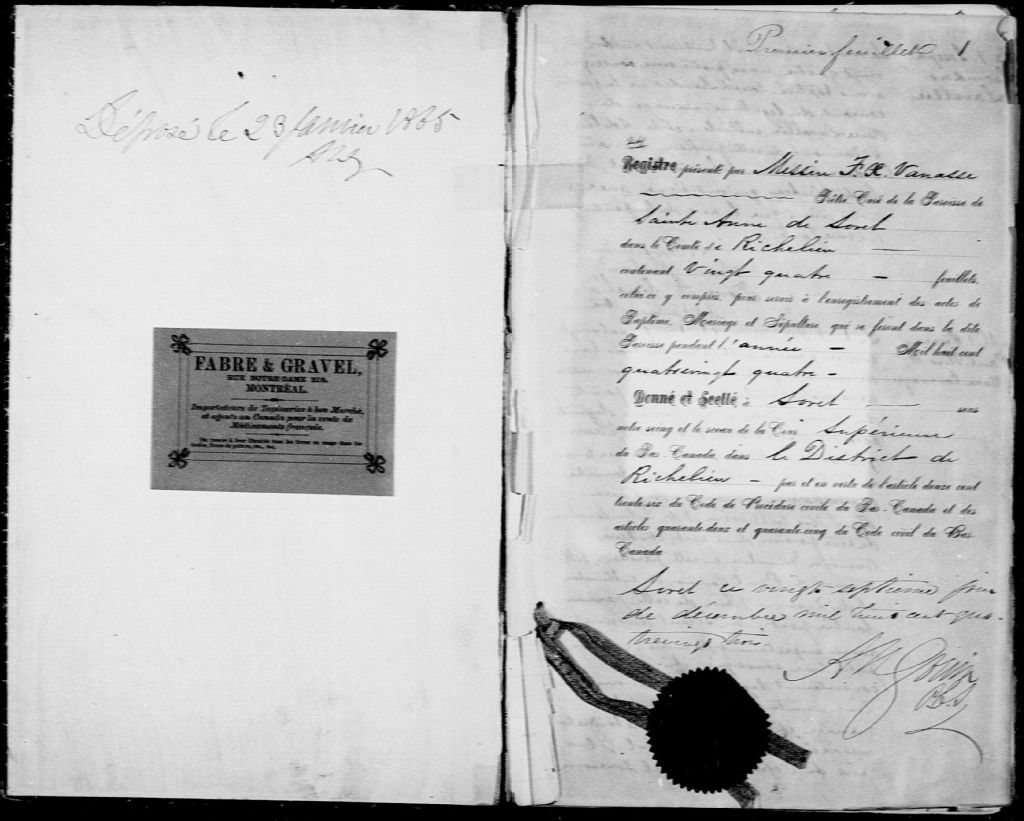 Déposé le 23 Janvier 1885
FABRE & GRAVEL,
RUE NOTRE-DAME 219,
MONTRÉAL.
Importateurs de Tapisseries à bon Marché,
et agents au Canada pour la vente de
Médicaments français.
Premier feuillet 1
Registre présenté par Messire F. X. Vanasse
Prêtre Curé de la Paroisse de
Sainte Anne de Sorel
dans le Comté de Richelieu —
contenant Vingt quatre — feuillets,
celui-ci y compris, pour servir à l'enregistrement des actes de
Baptême, Mariage et Sépulture, qui se feront dans la dite
Paroisse pendant l'année — Mil huit cent
quatrevingt quatre —
Donné et Scellé à Sorel — sous
notre seing et le sceau de la Cour Supérieure
du Bas-Canada, dans le District de
Richelieu — par et en vertu de l'article douze cent
trente-six du Code de Procédure civile du Bas-Canada et des
articles quarante-deux et quarante-cinq du Code civil du Bas
Canada
Sorel ce vingt septième jour
de décembre mil huit cent qua-
trevingt trois.
A N Gouin
P.C.S.